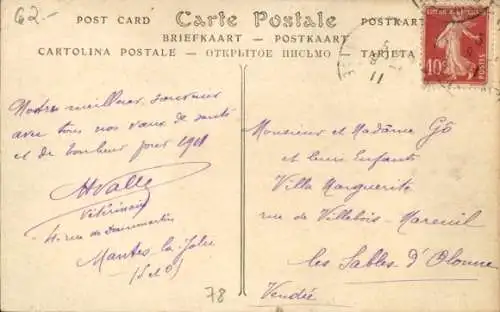 62.-
POST CARD Carte Postale POSTKARTE
BRIEFKAART — POSTKAART
CARTOLINA POSTALE — ОТКРЫТОЕ ПИСЬМО TARJETA
10
11
Notre meilleur souvenir
avec tous nos vœux de santé
et de bonheur pour 1911
HValle
Vétérinaire
4. rue de Dammartin
Mantes-la-Jolie
(S et O)
78
Monsieur et Madame Gô
et leurs Enfants
Villa Marguerite
rue de Villebois-Mareuil
les Sables d'Olonne
Vendée